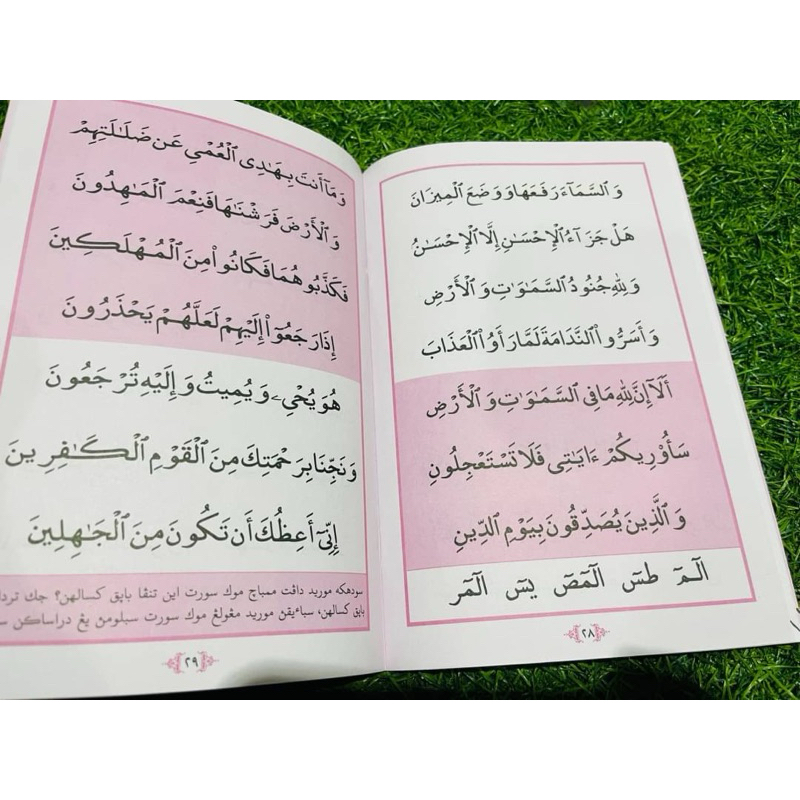 وَٱلسَّمَآءَ رَفَعَهَا وَوَضَعَ ٱلْمِيزَانَ
هَلْ جَزَآءُ ٱلْإِحْسَـٰنِ إِلَّا ٱلْإِحْسَـٰنُ
وَلِلَّهِ جُنُودُ ٱلسَّمَـٰوَٰتِ وَٱلْأَرْضِ
وَأَسَرُّوا۟ ٱلنَّدَامَةَ لَمَّا رَأَوُا۟ ٱلْعَذَابَ
أَلَآ إِنَّ لِلَّهِ مَا فِى ٱلسَّمَـٰوَٰتِ وَٱلْأَرْضِ
سَأُو۟رِيكُمْ ءَايَـٰتِى فَلَا تَسْتَعْجِلُونِ
وَٱلَّذِينَ يُصَدِّقُونَ بِيَوْمِ ٱلدِّينِ
الٓمٓ طسٓ الٓمٓصٓ يسٓ الٓمٓر
٢٨
وَمَآ أَنتَ بِهَـٰدِى ٱلْعُمْىِ عَن ضَلَـٰلَتِهِمْ
وَٱلْأَرْضَ فَرَشْنَـٰهَا فَنِعْمَ ٱلْمَـٰهِدُونَ
فَكَذَّبُوهُمَا فَكَانُوا۟ مِنَ ٱلْمُهْلَكِينَ
إِذَا رَجَعُوٓا۟ إِلَيْهِمْ لَعَلَّهُمْ يَحْذَرُونَ
هُوَ يُحْىِۦ وَيُمِيتُ وَإِلَيْهِ تُرْجَعُونَ
وَنَجِّنَا بِرَحْمَتِكَ مِنَ ٱلْقَوْمِ ٱلْكَـٰفِرِينَ
إِنِّىٓ أَعِظُكَ أَن تَكُونَ مِنَ ٱلْجَـٰهِلِينَ
سودهكه موريد داڤت ممباچ موك سورت اين تنڤا باڽق كسالهن؟ جك
باڽق كسالهن، سباءيقڽ موريد مڠولڠ موك سورت سبلومڽ يڠ دراساكن
٢٩